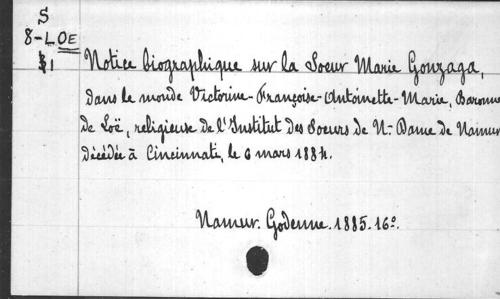 S
8-LOE
§1
Notice biographique sur la Soeur Marie Gonzaga,
dans le monde Victorine-Françoise-Antoinette-Marie, Baronne
de Loë, religieuse de l'Institut des Soeurs de N- Dame de Namur
décédée à Cincinnati, le 6 mars 1884.
Namur. Godenne. 1885. 16°.